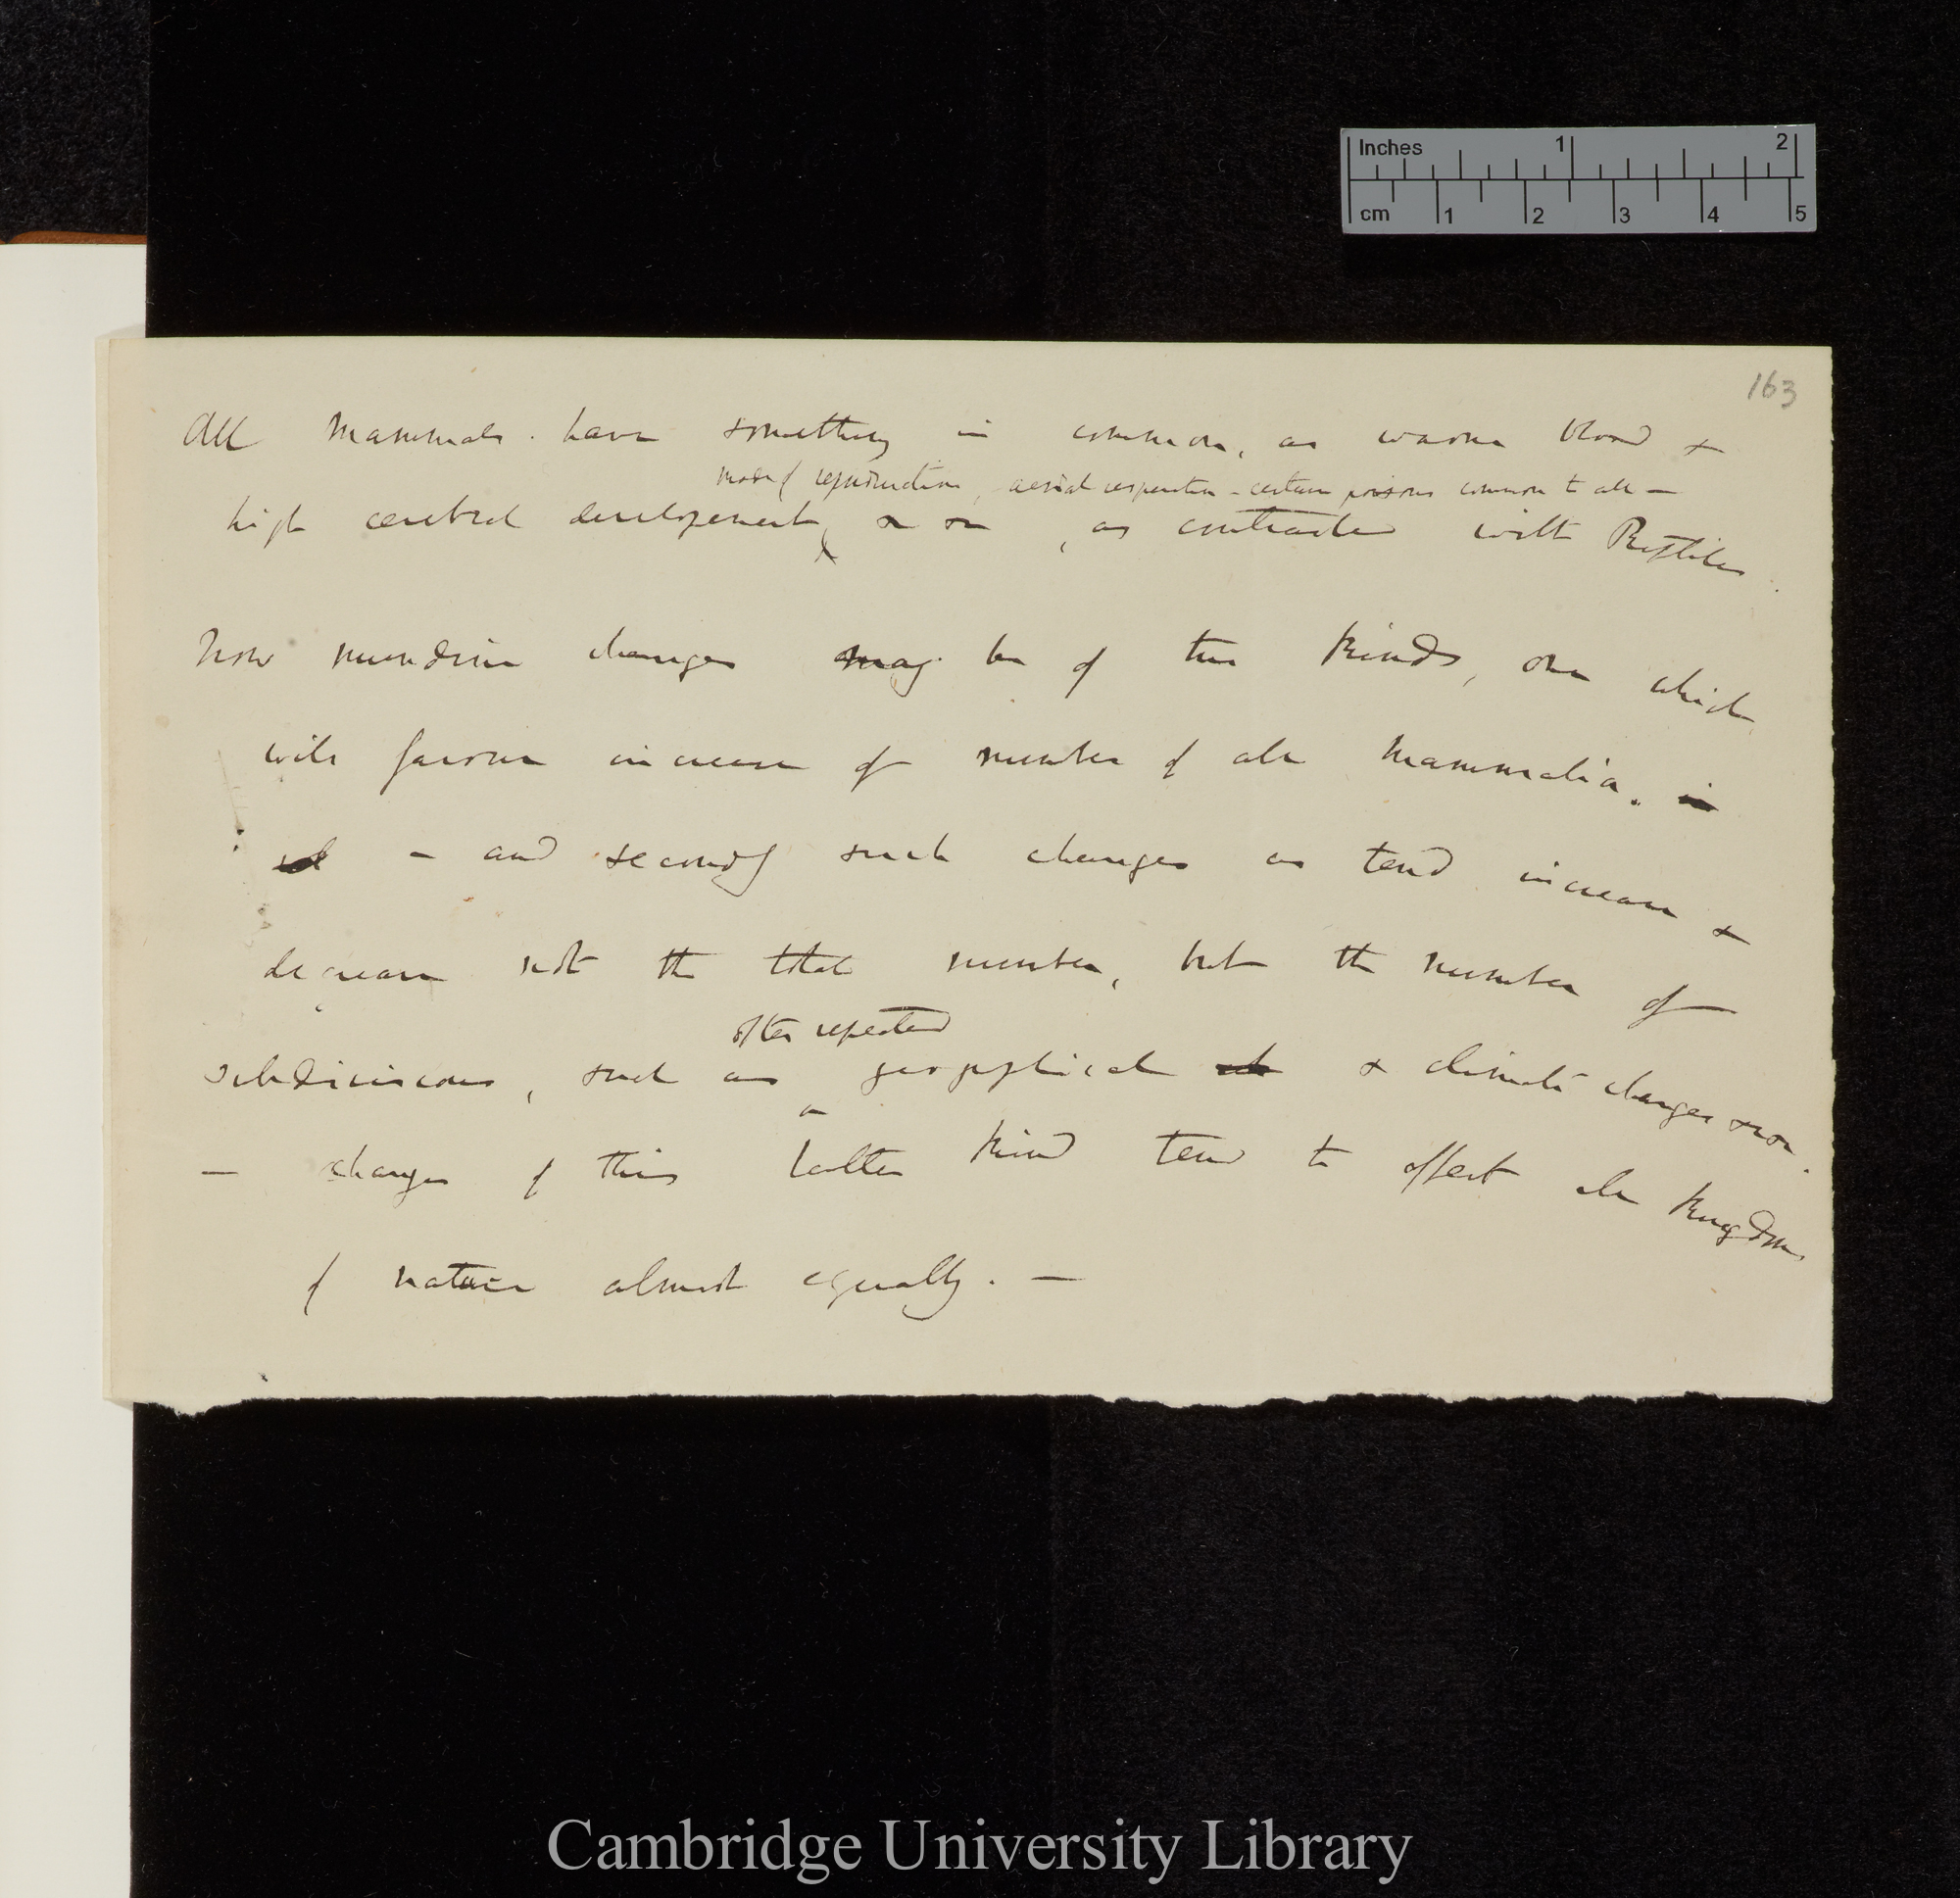 Inches 1 2
cm 1 2 3 4 5
163
All Mammals have something in common, as warm blood &
mode of reproduction, aerial respiration – certain poisons common to all –
high cerebral developement, & so on, as contrasted with Reptiles.
Now mundine changes may be of two kinds, one which
will favour increase of number of all Mammalia. in
– and secondly such changes as tend increase &
decrease not the total number, but the number of
often repeated
subdivisions, such as geographical ch & climatic changes & so on.
– changes of this latter kind tend to affect all Kingdoms
of nature almost equally. –
Cambridge University Library